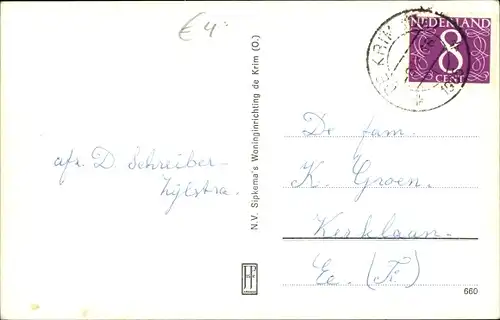 € 4
NEDERLAND
8
CENT
DE KRIM
afz. D. Schreiber-
Zijlstra.
N.V. Sipkema's Woninginrichting de Krim (O.)
De fam.
K. Groen.
Kerklaan.
Ee. (Fr.)
660